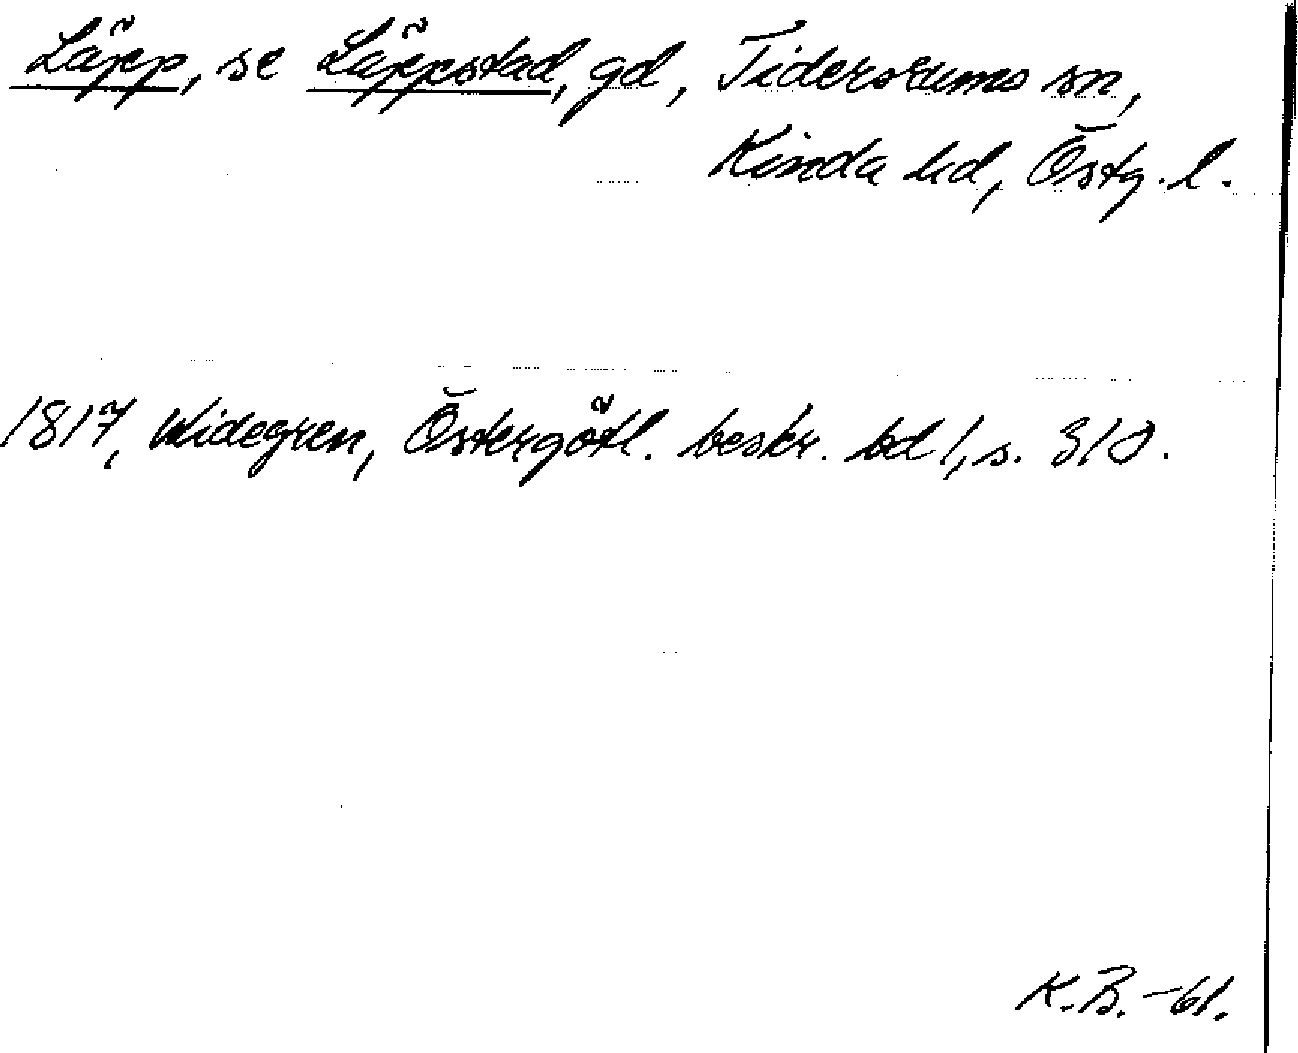 Läpp, se Läppstad, gd, Tidersrums sn,
Kinda hd, Östg. l.
1817, Widegren, Östergötl. beskr. bd 1, s. 310.
K.B. -61.